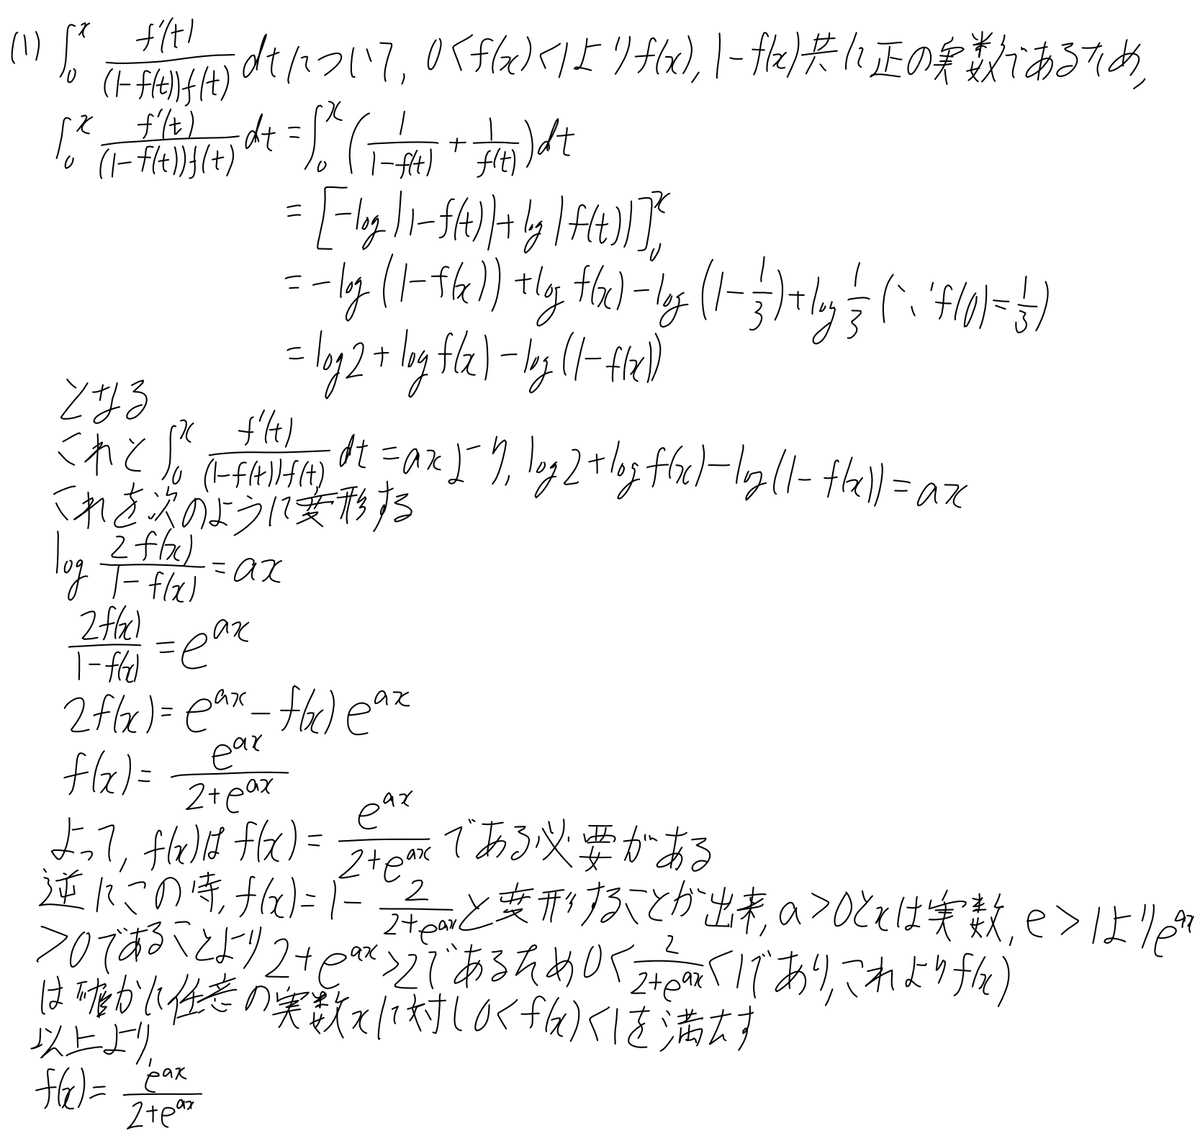 (1) ∫_0^x f'(t)/((1-f(t))f(t)) dtについて, 0<f(x)<1よりf(x), 1-f(x)共に正の実数であるため,
∫_0^x f'(t)/((1-f(t))f(t)) dt = ∫_0^x (1/(1-f(t)) + 1/f(t))dt
= [-log|1-f(t)|+log|f(t)|]_0^x
= -log(1-f(x))+log f(x)-log(1-1/3)+log 1/3 (∵f(0)=1/3)
= log2+log f(x)-log(1-f(x))
となる
これと ∫_0^x f'(t)/((1-f(t))f(t)) dt = axより, log2+log f(x)-log(1-f(x))=ax
これを次のように変形する
log 2f(x)/(1-f(x)) = ax
2f(x)/(1-f(x)) = e^{ax}
2f(x)=e^{ax}-f(x)e^{ax}
f(x)= e^{ax}/(2+e^{ax})
よって, f(x)はf(x)= e^{ax}/(2+e^{ax})である必要がある
逆にこの時, f(x)=1- 2/(2+e^{ax})と変形することが出来, a>0とxは実数, e>1よりe^{ax}
>0であることより2+e^{ax}>2であるため0< 2/(2+e^{ax}) <1であり, これよりf(x)
は確かに任意の実数xに対し0<f(x)<1を満たす
以上より,
f(x)= e^{ax}/(2+e^{ax})